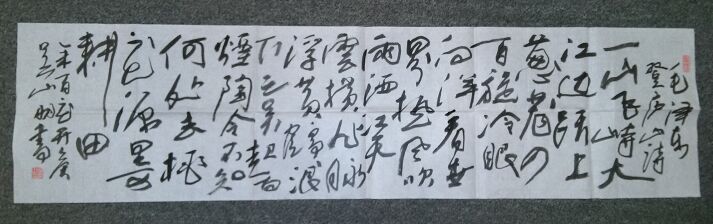 毛泽东
登庐山诗
一山飞峙大
江边跃上
葱茏四
百旋冷眼
向洋看世
界热风吹
雨洒江天
雲横九派
浮黄鹤浪
下三吴起白
煙陶令不知
何处去桃
花源里可
耕田
年百花开
吴山明書